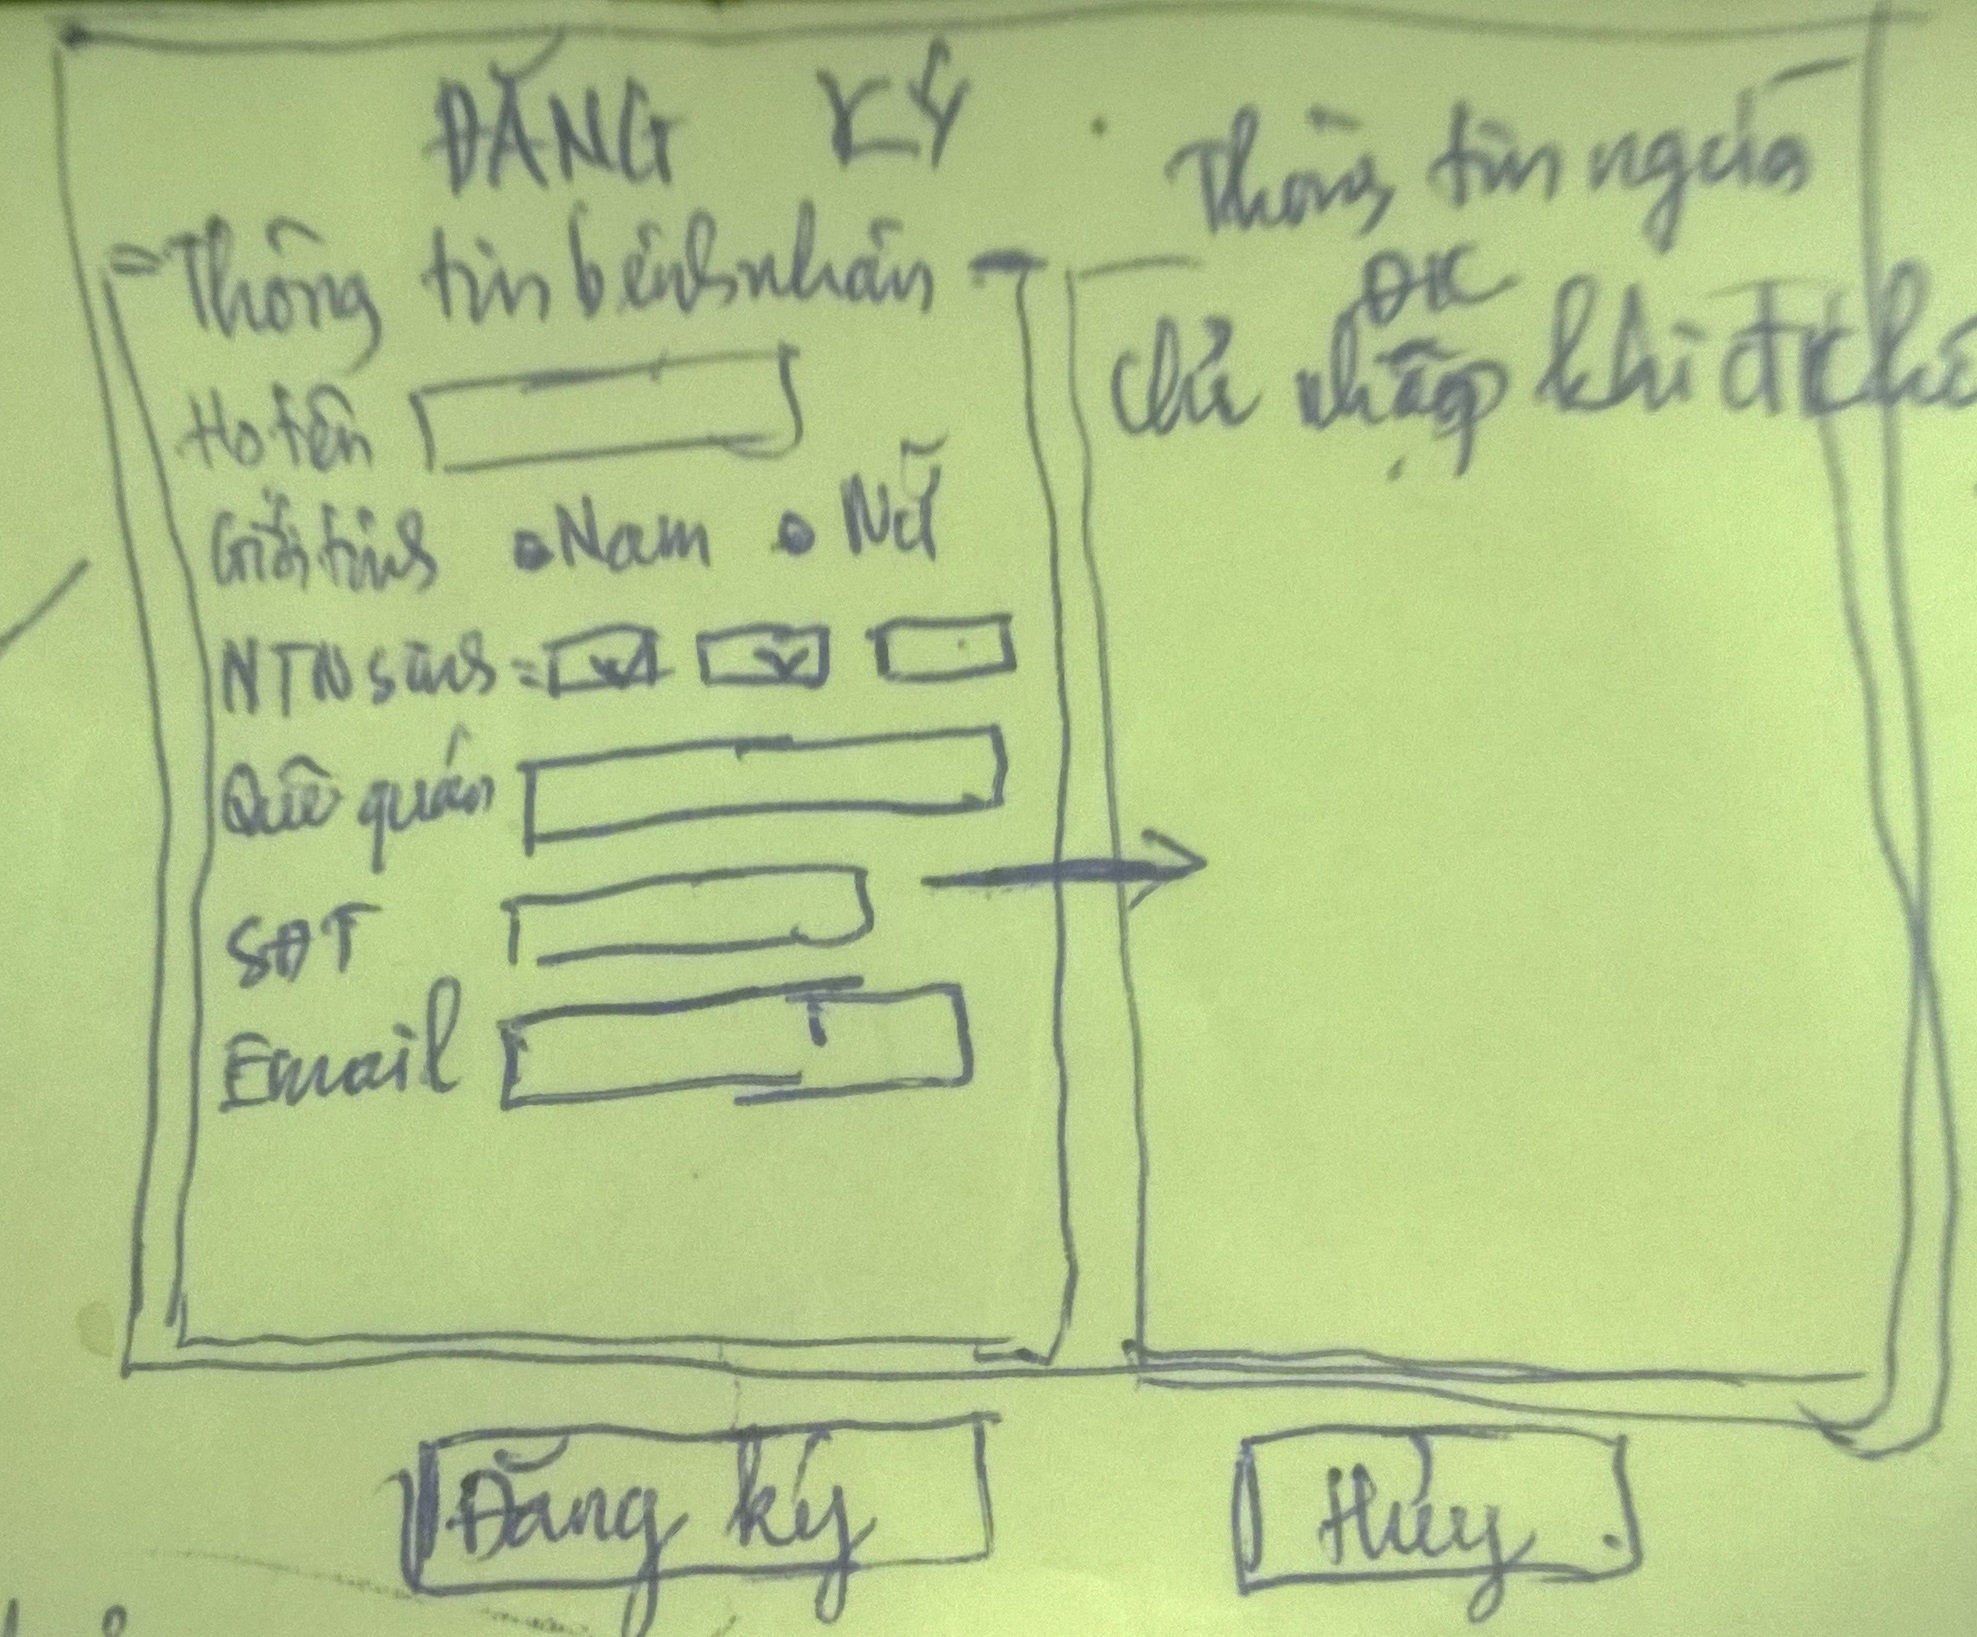 ĐĂNG KÝ
Thông tin bệnh nhân
Họ tên
Giới tính Nam Nữ
NTN sinh
Quê quán
SĐT
Email
Thông tin người
ĐK
Chỉ nhập khi đk
Đăng ký
Hủy